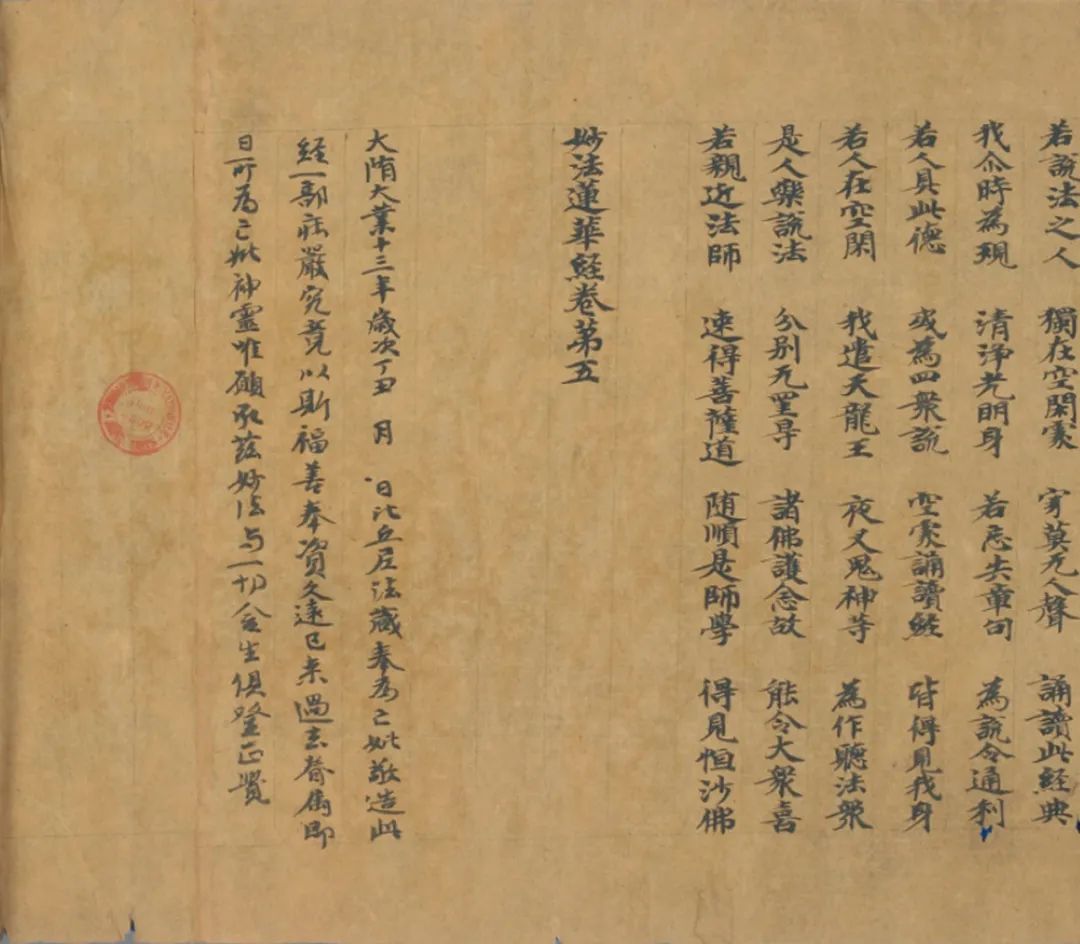 若說法之人　獨在空閑處　㝧莫无人聲　誦讀此經典
我尒時為現　清淨光明身　若忘失章句　為說令通利
若人具此德　或為四衆說　空處誦讀經　皆得見我身
若人在空閑　我遣天龍王　夜叉鬼神等　為作聽法衆
是人樂說法　分別无罣㝵　諸佛護念故　能令大衆喜
若親近法師　速得菩薩道　随順是師學　得見恒沙佛
妙法蓮華經卷第五
大隋大業十三年歲次丁丑　月　日比丘尼法藏奉為亡妣敬造此
經一部莊嚴究竟以斯福善奉資久遠已來過去眷属即
日所為亡妣神靈唯願承茲妙法与一切含生俱登正覺